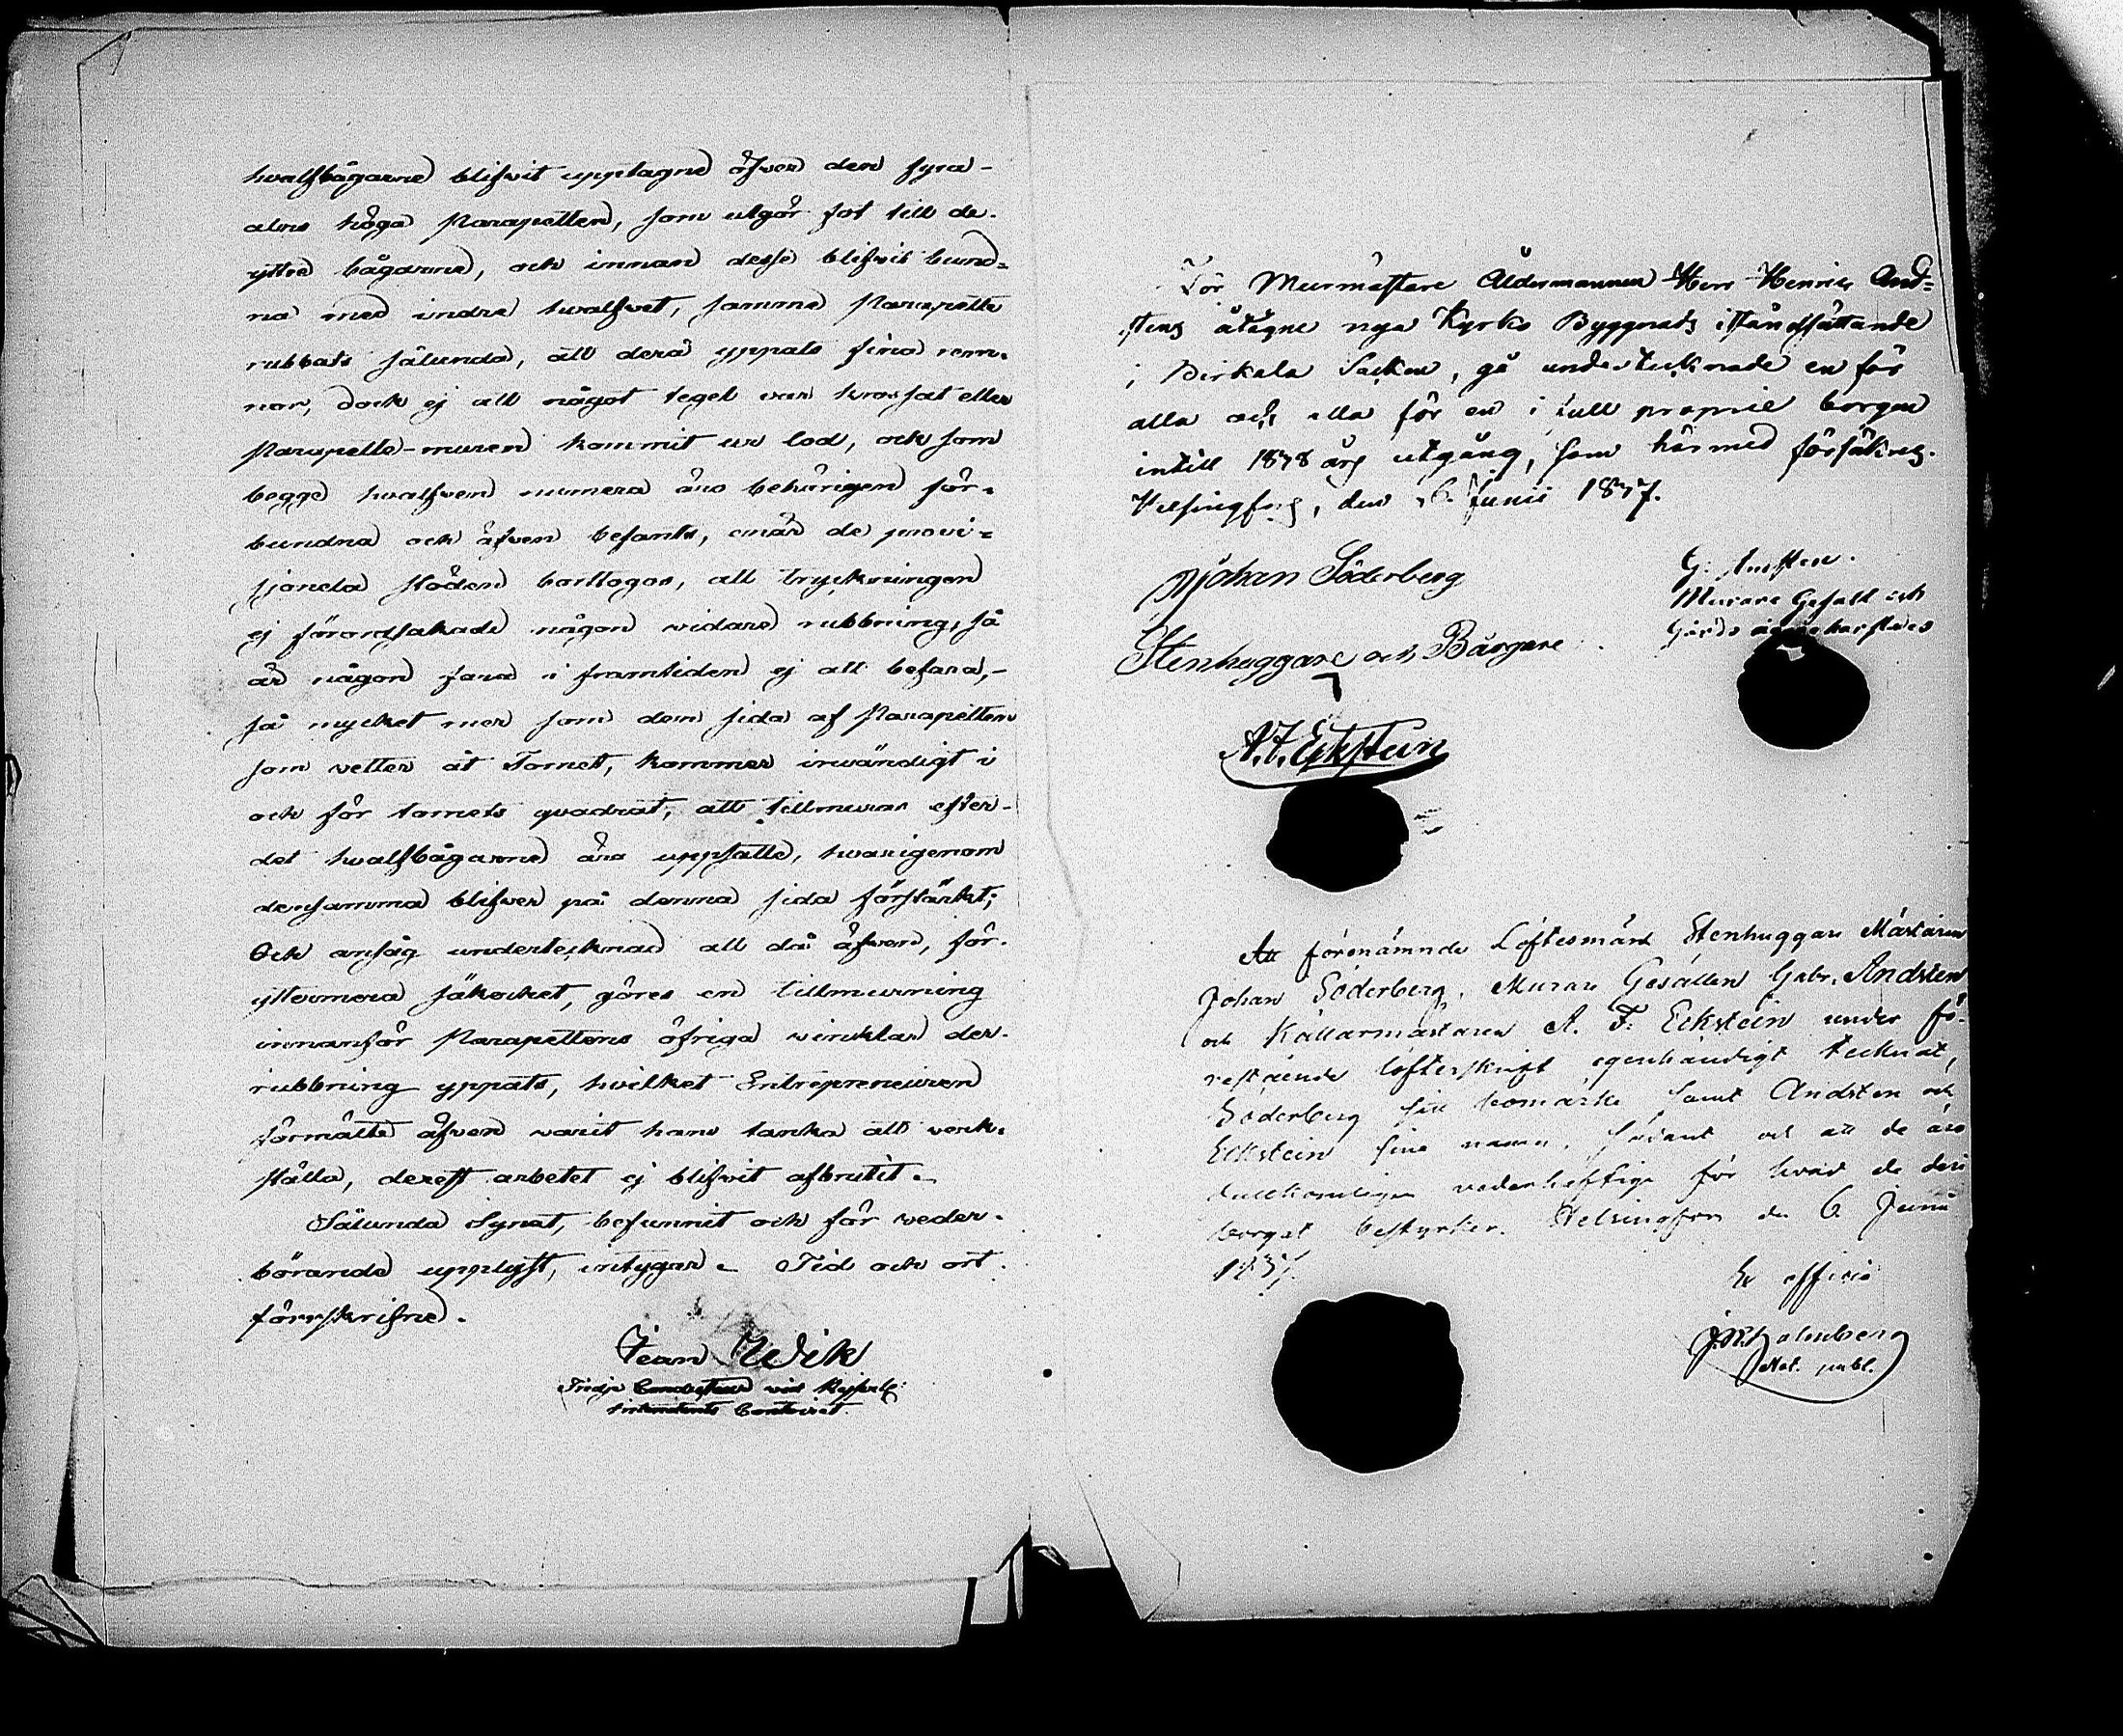 hvalfbågarne blifvit upptagne öfver den fyra-
alns höga Parapetten, som utgör fot till de
yttre bågarne, och innan desse blifvit bund=
na med indre hvalfvet, samma Parapette
rubbats sålunda, att derå yppats fina rem=
nor, dock ej att något tegel var krossat eller
Parapette-muren kommit ur lod, och som
begge hvalfven numera äro behörigen för=
bundna och äfven befants, enär de provi=
sjonela stöden borttogos, att tryckningen
ej förordsakade någon vidare rubbning, så
är någon fara i framtiden ej att befara,-
så mycket mer som den sida af Parapetten
som vetter åt Tornet, kommer invändigt i
och för tornets quadrat, att tillmuras efter-
det hvalfbågarne äro uppsatte, hvarigenom
densamma blifver på denna sida förstärkt;
Och ansåg undertecknad att då äfven, för
yttermera säkerhet, göres en tillmurning
innanför Parapettens öfriga vinklar der
rubbning yppats, hvilket Entrepreneuren
förmälte äfven varit hans tanka att verk=
ställa, derest arbetet ej blifvit afbrutit.
Sålunda Synat, befunnit och för veder-
börande upplyst, intygar. Tid och ort
förrskrifne.
Jean Wik
Tredje Conducteur vid Kejserlg:
Intendents Contoiret.
För Murmästare Åldermannen Herr Henric And=
stens åtagne nya Kyrko Byggnads iståndsättande
i Birkala Socken, gå undertecknade en för
alla och alla för en i full proprie borgen
intill 1838 års utgång, som härmed försäkras.
Helsingfors, den 6. Junii 1837.
Johan Söderberg
Stenhuggare och Bårgare
G. Andsten.
Murare Gesäll och
Gårds
A. F. Eckstein
Att förenämnde Löftesmänd Stenhuggare Mästaren
Johan Söderberg, Murare Gesällen Gabr. Andsten
och Källarmästaren A. F. Eckstein under fö-
restående löftesskrift egenhändigt tecknat,
Söderberg sitt bomärke samt Andsten och
Eckstein sine namn, sådant och att de äro
fullkomligen vederhäftige för hvad de deri
borgat bestyrker. Helsingfors den 6 Junii
1837.
Ex officio
J. W. Holmberg
Not. publ.